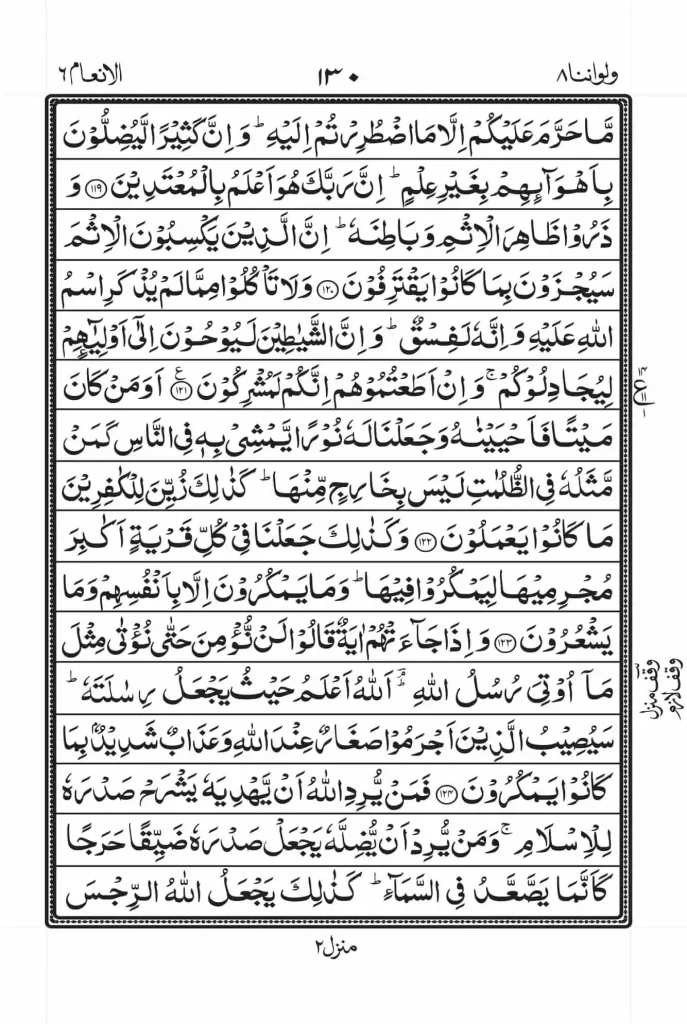 ولواننا ۸
۱۳۰
الانعام ۶
مَّا حَرَّمَ عَلَيْكُمْ اِلَّا مَا اضْطُرِرْتُمْ اِلَيْهِ ؕ وَ اِنَّ كَثِيْرًا لَّيُضِلُّوْنَ
بِاَهْوَآىِٕهِمْ بِغَيْرِ عِلْمٍ ؕ اِنَّ رَبَّكَ هُوَ اَعْلَمُ بِالْمُعْتَدِيْنَ ۝۱۱۹ وَ
ذَرُوْا ظَاهِرَ الْاِثْمِ وَ بَاطِنَهٗ ؕ اِنَّ الَّذِيْنَ يَكْسِبُوْنَ الْاِثْمَ
سَيُجْزَوْنَ بِمَا كَانُوْا يَقْتَرِفُوْنَ ۝۱۲۰ وَلَا تَاْكُلُوْا مِمَّا لَمْ يُذْكَرِ اسْمُ
اللّٰهِ عَلَيْهِ وَ اِنَّهٗ لَفِسْقٌ ؕ وَ اِنَّ الشَّيٰطِيْنَ لَيُوْحُوْنَ اِلٰۤى اَوْلِيٰٓـِٕهِمْ
لِيُجَادِلُوْكُمْ ۚ وَ اِنْ اَطَعْتُمُوْهُمْ اِنَّكُمْ لَمُشْرِكُوْنَ ۝۱۲۱ ع اَوَ مَنْ كَانَ
مَيْتًا فَاَحْيَيْنٰهُ وَ جَعَلْنَا لَهٗ نُوْرًا يَّمْشِيْ بِهٖ فِي النَّاسِ كَمَنْ
مَّثَلُهٗ فِي الظُّلُمٰتِ لَيْسَ بِخَارِجٍ مِّنْهَا ؕ كَذٰلِكَ زُيِّنَ لِلْكٰفِرِيْنَ
مَا كَانُوْا يَعْمَلُوْنَ ۝۱۲۲ وَ كَذٰلِكَ جَعَلْنَا فِيْ كُلِّ قَرْيَةٍ اَكٰبِرَ
مُجْرِمِيْهَا لِيَمْكُرُوْا فِيْهَا ؕ وَ مَا يَمْكُرُوْنَ اِلَّا بِاَنْفُسِهِمْ وَ مَا
يَشْعُرُوْنَ ۝۱۲۳ وَ اِذَا جَآءَتْهُمْ اٰيَةٌ قَالُوْا لَنْ نُّؤْمِنَ حَتّٰى نُؤْتٰى مِثْلَ
مَاۤ اُوْتِيَ رُسُلُ اللّٰهِ ؔۘ اَللّٰهُ اَعْلَمُ حَيْثُ يَجْعَلُ رِسٰلَتَهٗ ؕ
سَيُصِيْبُ الَّذِيْنَ اَجْرَمُوْا صَغَارٌ عِنْدَ اللّٰهِ وَ عَذَابٌ شَدِيْدٌۢ بِمَا
كَانُوْا يَمْكُرُوْنَ ۝۱۲۴ فَمَنْ يُّرِدِ اللّٰهُ اَنْ يَّهْدِيَهٗ يَشْرَحْ صَدْرَهٗ
لِلْاِسْلَامِ ۚ وَ مَنْ يُّرِدْ اَنْ يُّضِلَّهٗ يَجْعَلْ صَدْرَهٗ ضَيِّقًا حَرَجًا
كَاَنَّمَا يَصَّعَّدُ فِي السَّمَآءِ ؕ كَذٰلِكَ يَجْعَلُ اللّٰهُ الرِّجْسَ
وقف منزل
وقف لازم
منزل ۲